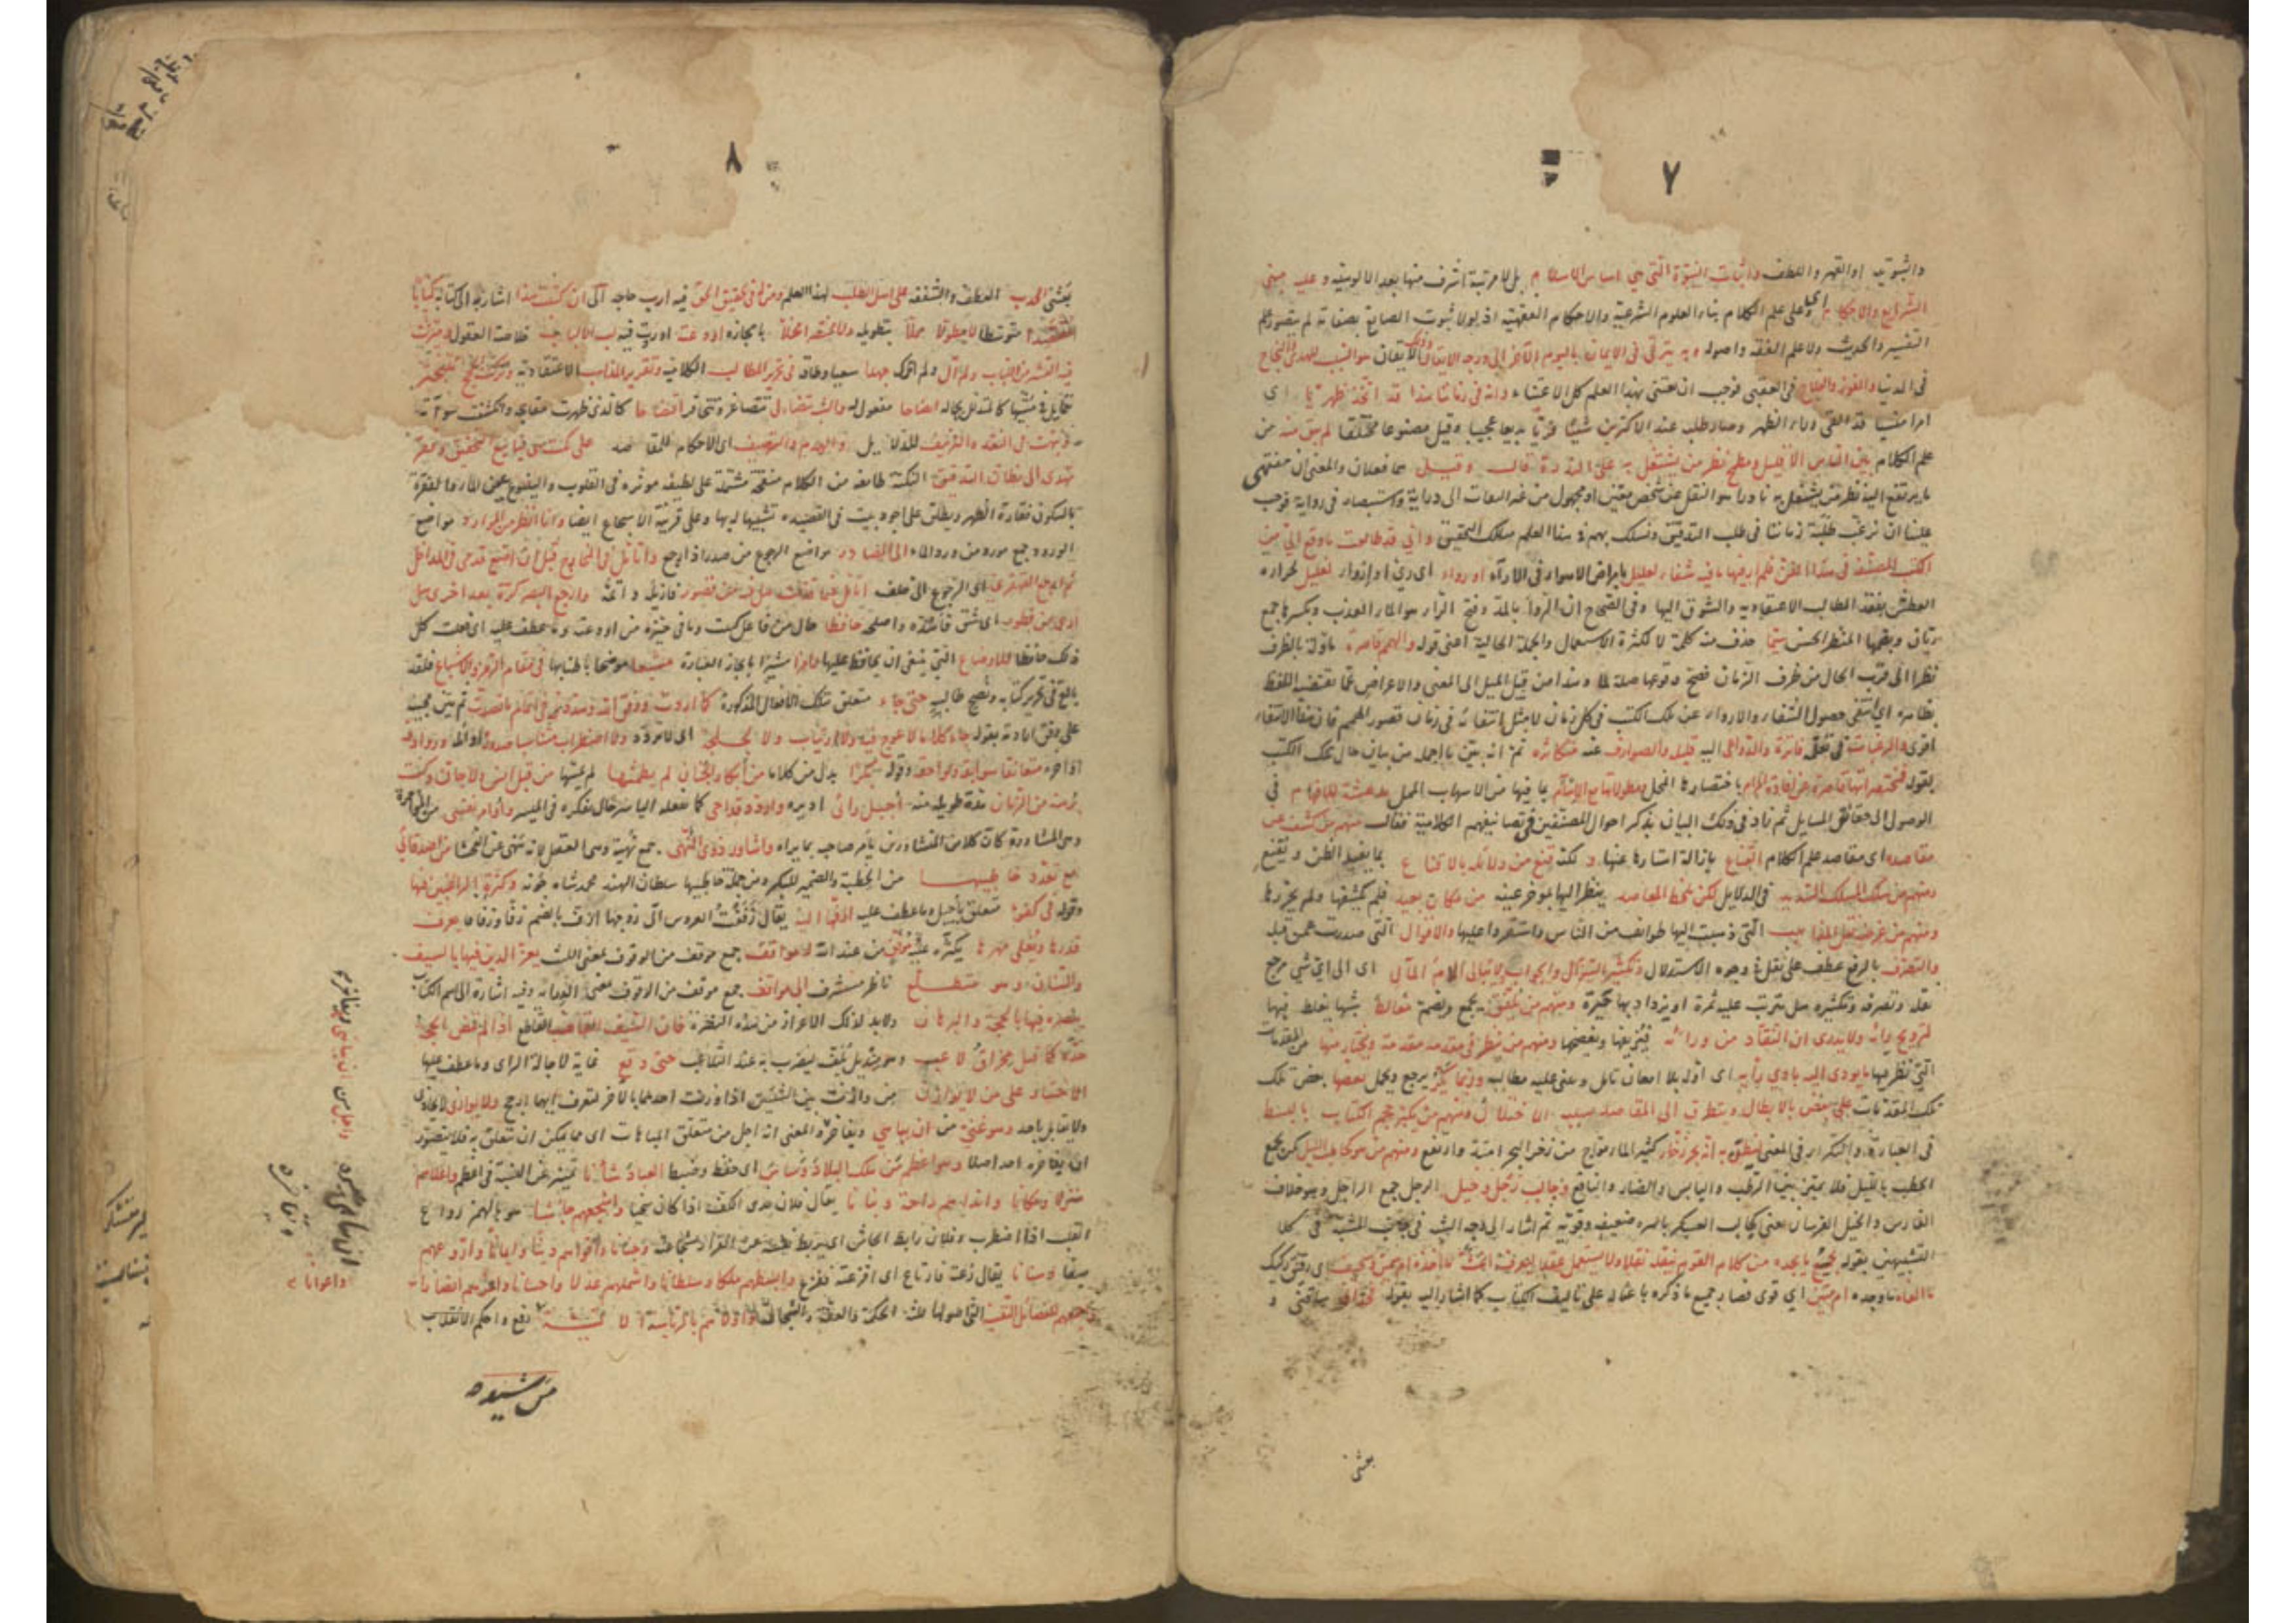 ٧
والثبوتية او القهر واللطف واثبات النبوة التي هي اساس الاسلام بل لا مرتبة اشرف منها بعد الالوهية وعليه مبنى
الشرايع والاحكام اي وعلى علم الكلام بناء العلوم الشرعية والاحكام الفقهية اذ لولا ثبوت الصانع بصفاته لم يتصور علم
التفسير والحديث ولا علم الفقه واصوله وبه يترقى في الايمان باليوم الآخر الى درجة الايقان وذلك الايقان هو السبب للهدى والنجاح
في الدنيا والفوز والفلاح في العقبى فوجب ان يعتنى بهذا العلم كل الاعتناء وانه في زماننا هذا قد اتخذ ظهريا اى
امرا منسيا قد القى وراء الظهر وصار طلبه عند الاكثرين شيئا فريا بديعا عجيبا وقيل مصنوعا مختلقا لم يبق منه من
علم الكلام بين الناس الا قليل ومطمح نظر من يشتغل به على الندرة قال وقيل هما فعلان والمعنى ان منتهى
ما يرتفع اليه نظر من يشتغل به نادرا هو النقل عن شخص معين او مجهول من غير التفات الى دراية واستبصار في رواية فوجب
علينا ان نرغب طلبة زماننا في طلب التدقيق ونسلك بهم في هذا العلم مسلك التحقيق واني قد طالعت ما وقع الي من
الكتب المصنفة في هذا الفن فلم ار فيها ما فيه شفاء لعليل بامراض الاهواء في الآراء او رواء اى ري او ارواء لغليل لحرارة
العطش بفقد المطالب الاعتقادية والشوق اليها وفي الصحاح ان الرواء بالمد وفتح الراء هو الماء العذب وبكسرها جمع
ريان وبضمها المنظر الحسن سيما حذف منه كلمة لا لكثرة الاستعمال والجملة الحالية اعني قوله والهمم قاصرة مأولة بالظرف
نظرا الى قرب الحال من ظرف الزمان فصح وقوعها صلة لما وهذا من قبيل الميل الى المعنى والاعراض عما يقتضيه اللفظ
بظاهره اي انتفى حصول الشفاء والارواء عن تلك الكتب في كل زمان لا مثل انتفائه في زمان قصور الهمم فان هذا الانتفاء
اقوى والرغبات في تعلمه فاترة والدواعي اليه قليلة والصوارف عنه متكاثرة ثم انه بين ما اجمله من بيان حال تلك الكتب
بقوله فمختصراتها قاصرة عن افادة المرام باختصارها المخل ومطولاتها مع الاسآم بما فيها من الاسهاب الممل مدهشة للافهام في
الوصول الى حقائق المسايل ثم زاد في ذلك البيان بذكر احوال المصنفين في تصانيفهم الكلامية فقال فمنهم من كشف عن
مقاصده اى مقاصد علم الكلام القناع بازالة استارها عنها ولكنه قنع من دلائله بالاقناع بما يفيد الظن ويقنع
ومنهم من سلك المسلك السديد في الدلايل لكن يلحظ المقاصد ينظر اليها بمؤخر عينه من مكان بعيد فلم يكشفها ولم يحررها
ومنهم من غرضه نقل المذاهب التي ذهبت اليها طوائف من الناس واستقروا عليها والاقوال التي صدرت عمن قبله
والتصرف بالرفع عطف على نقل في وجوه الاستدلال وتكثير السؤال والجواب ولا يبالي الام المآل اى الى اي شي مرجع
نقله وتصرفه وتكثيره هل يترتب عليه ثمرة او يزداد بها حيرة ومنهم من يلفق يجمع ويضم مغالط شبها يغلط فيها
لترويج رأيه ولا يدري ان النقاد من ورائه فيزيفها ويفضحها ومنهم من ينظر في مقدمة مقدمة ويختار منها من المقدمات
التي نظر فيها ما يؤدى اليه بادي رأيه اى اوله بلا امعان تأمل ويبنى عليه مطالبه وربما يكر يرجع ويحمل بعضها بعض تلك
المقدمات على بعض بالابطال ويتطرق الى المقاصد بسببه الاختلال ومنهم من يكبر حجم الكتاب بالبسط
في العبارة والتكرار في المعنى ليظن به انه بحر زخار كثير الماء مواج من زخر البحر امتد وارتفع ومنهم من هو كحاطب ليل كمن يجمع
الحطب بالليل فلا يميز بين الرطب واليابس والضار والنافع وجالب رجل وخيل الرجل جمع الراجل وهو خلاف
الفارس والخيل الفرسان يعني كجالب العسكر باسره ضعيفه وقويه ثم اشار الى وجه الشبه في جانب المشبه في كلا
التشبيهين بقوله يجمع ما يجده من كلام القوم ينقله نقلا ولا يستعمل عقلا ليعرف اغث ما اخذه ام سمين وسخيف اى رقيق ركيك
ما الفاه ما وجده ام متين اي قوى فصار جميع ما ذكره باعثا له على تأليف الكتاب كما اشار اليه بقوله فحداني ساقني و
بعثني
٨
بعثني الحدب العطف والشفقة على اهل الطلب لهذا العلم ومن له في تحقيق الحق فيه ارب حاجة الى ان كتبت هذا اشارة الى كتابه كتابا
مقتصدا متوسطا لا مطولا مملا بتطويله ولا مختصرا مخلا بايجازه اودعته اوردت فيه لب الالباب خلاصة العقول وميزت
فيه القشر من اللباب ولم آل ولم اترك جهدا سعيا وطاقة في تحرير المطالب الكلامية وتقرير المذاهب الاعتقادية وتركت الحجج تتبختر
تتمايل في مشيها كالمتدلل بجماله اتضاحا مفعول له والشبه تتضاءل تتصاغر وتتحاقر افتضاحا كالذى ظهرت معايبه وانكشفت سوآته
ونبهت في النقد والتزييف للدلايل والهدم والترصيف اى الاحكام للمقاصد على نكت هي ينابيع التحقيق وفقر
تهدى الى مظان التدقيق النكتة طائفة من الكلام منقحة مشتملة على لطيفة مؤثرة في القلوب والينبوع عين الماء والفقرة
بالسكون فقارة الظهر ويطلق على اجود بيت في القصيدة تشبيها لها وعلى قرينة الاسجاع ايضا وانا انظر من الموارد مواضع
الورود جمع مورد من ورد الماء الى المصادر مواضع الرجوع من صدر اذا رجع واتأمل في المخارج قبل ان اضع قدمي في المداخل
ثم ارجع القهقرى اى الرجوع الى خلف اتأمل فيما قدمت هل فيه من قصور فازيله واتمه وارجع البصر كرة بعد اخرى هل
ارى من فطور اى شق فاسده واصلحه حافظا حال من فاعل كتبت وما في حيزه من اودعته وما عطف عليه اى فعلت كل
ذلك حافظا للاوضاع التي ينبغي ان يحافظ عليها رامزا مشيرا بايجاز العبارة مشبعا موضحا باطنابها في مقام الرمز والاشباع فلقد
بالغ في تحرير كتابه ونصح طالبيه حتى جاء متعلق بتلك الافعال المذكورة كما اردت ووفق الله وسدد في اتمام ما قصدت ثم بين مجيئه
على وفق ارادته بقوله جاء كلاما لا عوج فيه ولا ارتياب ولا لجلجة اى لا تردد ولا اضطراب متناسبا صدوره اوائله وروادفه
اواخره متعانقا سوابقه ولواحقه وقوله بكرا بدل من كلاما من ابكار الجنان لم يطمثها لم يمسها من قبل انس ولا جان وكنت
برهة من الزمان مدة طويلة منه اجيل رأيي اديره واردد قداحي كما يفعله الياسر حال تفكره في الميسر واوامر نفسي من المؤامرة
وهي المشاورة كان كلا من المتشاورين يأمر صاحبه بما يراه واشاور ذوى النهى جمع نهية وهي العقل لانه ينهى عن الفحشا من اصدقائي
مع تعدد خاطبيها من الخطبة والضمير للبكر ومن جملة خاطبيها سلطان الهند محمد شاه جونه وكثرة الراغبين فيها
وقوله في كفؤ متعلق باجيل وما عطف عليه ازفها اليه يقال زففت العروس الى زوجها ازف بالضم زفا وزفافا يعرف
قدرها ويغلي مهرها يكثره عليه موفق من عند الله له مواقف جمع موقف من الوقوف بمعنى اللبث يعز الدين فيها بالسيف
والسنان وهو متطلع ناظر مستشرف الى مواقف جمع موقف من الوقوف بمعنى الدراية وفيه اشارة الى اسم الكتاب
ينصره فيها بالحجة والبرهان ولا بد لذلك الاعزاز من هذه النصرة فان السيف القاضب القاطع اذا لم تمض الحجة
حده كما قيل مخراق لاعب وهو منديل يلف ليضرب به عند التلاعب حتى وقع غاية لاجالة الراى وما عطف عليها
الاختيار على من لا يوازن من وازنت بين الشيئين اذا وزنت احدهما بالآخر لتعرف ايهما ارجح ولا يوازى لا يحاذى
ولا يقابل باحد وهو غني من ان يباهى ويفاخر والمعنى انه اجل من متعلق المباهات اى مما يمكن ان تتعلق به فلا يتصور
ان يفاخره احد اصلا وهو اعظم من ملك البلاد وساس اى حفظ وضبط العباد شأنا تمييز عن النسبة في اعظم واعلاهم
منزلا ومكانا وانداهم راحة وبنانا يقال فلان ندى الكف اذا كان سخيا واشجعهم جأشا هو بالهمز رواع
القلب اذا اضطرب وفلان رابط الجاش اى يربط نفسه عن الفرار لشجاعته وجنانا واقواهم دينا وايمانا واروعهم
سيفا وسنانا يقال رعته فارتاع اى افزعته ففزع وابسطهم ملكا وسلطانا واشملهم عدلا واحسانا واعزهم انصارا
واجمعهم للفضائل النفسية التي اصولها ثلثة الحكمة والعفة والشجاعة واولاهم بالرياسة الانسية رفع واحكم الانقلاب
من شيد
واعوانا